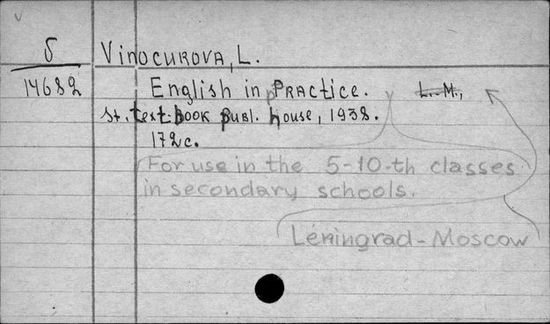 V
5 Vinocurova, L.
14682 English in Practice. L. M.,
St. text book publ. house, 1938.
172 c.
For use in the 5-10-th classes
in secondary schools.
Leningrad - Moscow